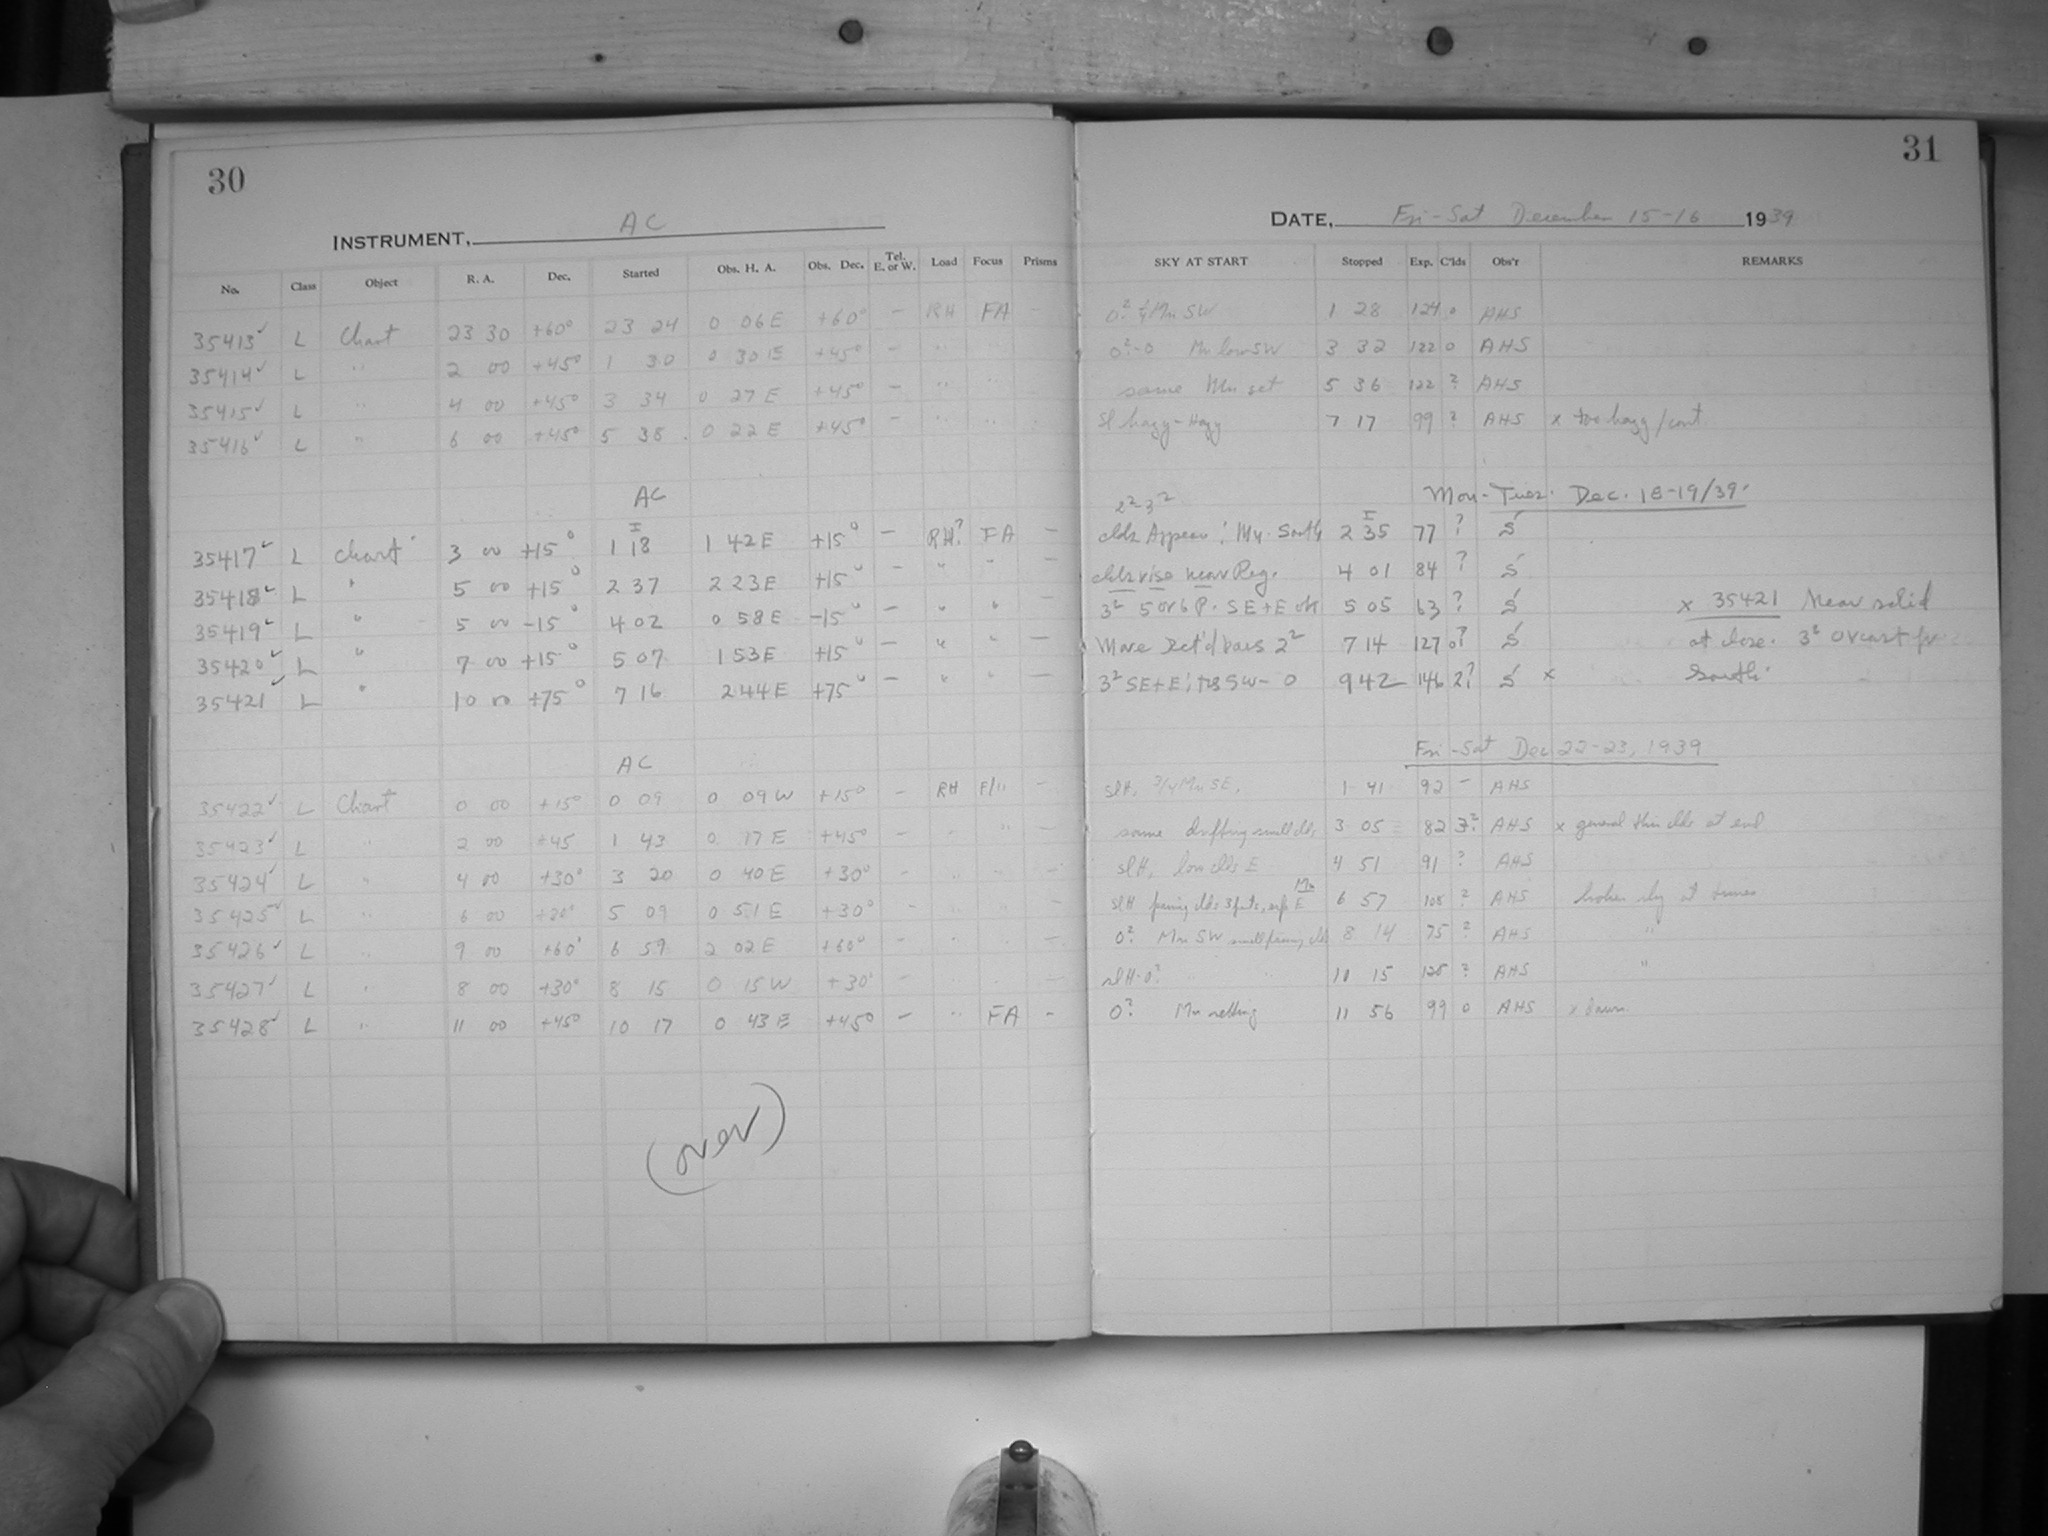 30
INSTRUMENT, AC
No. Class Object R. A. Dec. Started Obs. H. A. Obs. Dec. Tel. E. or W. Load Focus Prisms
35413 ✓ L Chart 23 30 +60° 23 24 0 06 E +60° - RH FA -
35414 ✓ L " 2 00 +45° 1 30 0 30 E +45° - " "
35415 ✓ L " 4 00 +45° 3 34 0 27 E +45° - " "
35416 ✓ L " 6 00 +45° 5 38 0 22 E +45° - " "
AC
35417 ✓ L Chart 3 00 +15° 1 18 1 42 E +15° - RH? FA -
35418 ✓ L " 5 00 +15° 2 37 2 23 E +15° - " " -
35419 ✓ L " 5 00 -15° 4 02 0 58 E -15° - " " -
35420 ✓ L " 7 00 +15° 5 07 1 53 E +15° - " " -
35421 ✓ L " 10 00 +75° 7 16 2 44 E +75° - " " -
AC
35422 ✓ L Chart 0 00 +15° 0 09 0 09 W +15° - RH -
35423 ✓ L " 2 00 +45 1 43 0 17 E +45° - " " -
35424 ✓ L " 4 00 +30° 3 20 0 40 E +30° - " " -
35425 ✓ L " 6 00 5 09 0 51 E +30° - " " -
35426 ✓ L " 9 00 +60° 6 59 2 02 E +60° - " " -
35427 ✓ L " 8 00 +30° 8 15 0 15 W +30° - " " -
35428 ✓ L " 11 00 +45° 10 17 0 43 E +45° - " FA -
(over)
31
DATE, Fri-Sat December 15-16 1939
SKY AT START Stopped Exp. C'lds Obs'r REMARKS
0? Mn SW 1 28 124 0 AHS
0?-0 Mn low SW 3 32 122 0 AHS
same Mn set 5 36 122 ? AHS
sl hazy-Hazy 7 17 99 ? AHS x too hazy/cont.
Mon-Tues. Dec. 18-19/39.
2²-3²
clds Appear; My. South 2 35 77 ? S
clds rise near Reg. 4 01 84 ? S
3² 5 or 6 P. SE+E ok 5 05 63 ? S x 35421 Near solid
More 2² 7 14 127 0? S at close. 3² Overcast
3² SE+E; SW-0 9 42 146 2? S x South.
Fri-Sat Dec 22-23, 1939
slH, 3/4 Mn SE, 1 41 92 - AHS
same drifting small clds 3 05 82 3? AHS x general thin clds at end
slH, low clds E 4 51 91 ? AHS
slH passing clds Mn E 6 57 108 ? AHS broken sky at times
0? Mn SW small passing clds 8 14 75 ? AHS "
slH-0? " " 10 15 120 ? AHS "
0? Mn setting 11 56 99 0 AHS x dawn